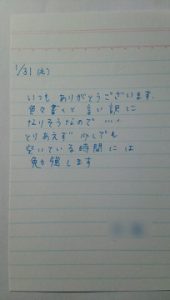 1/31 (火)
いつも ありがとうございます.
色々書くと 言い訳に
なりそうなので ・・・
とりあえず 少しでも
空いている時間には
勉強します